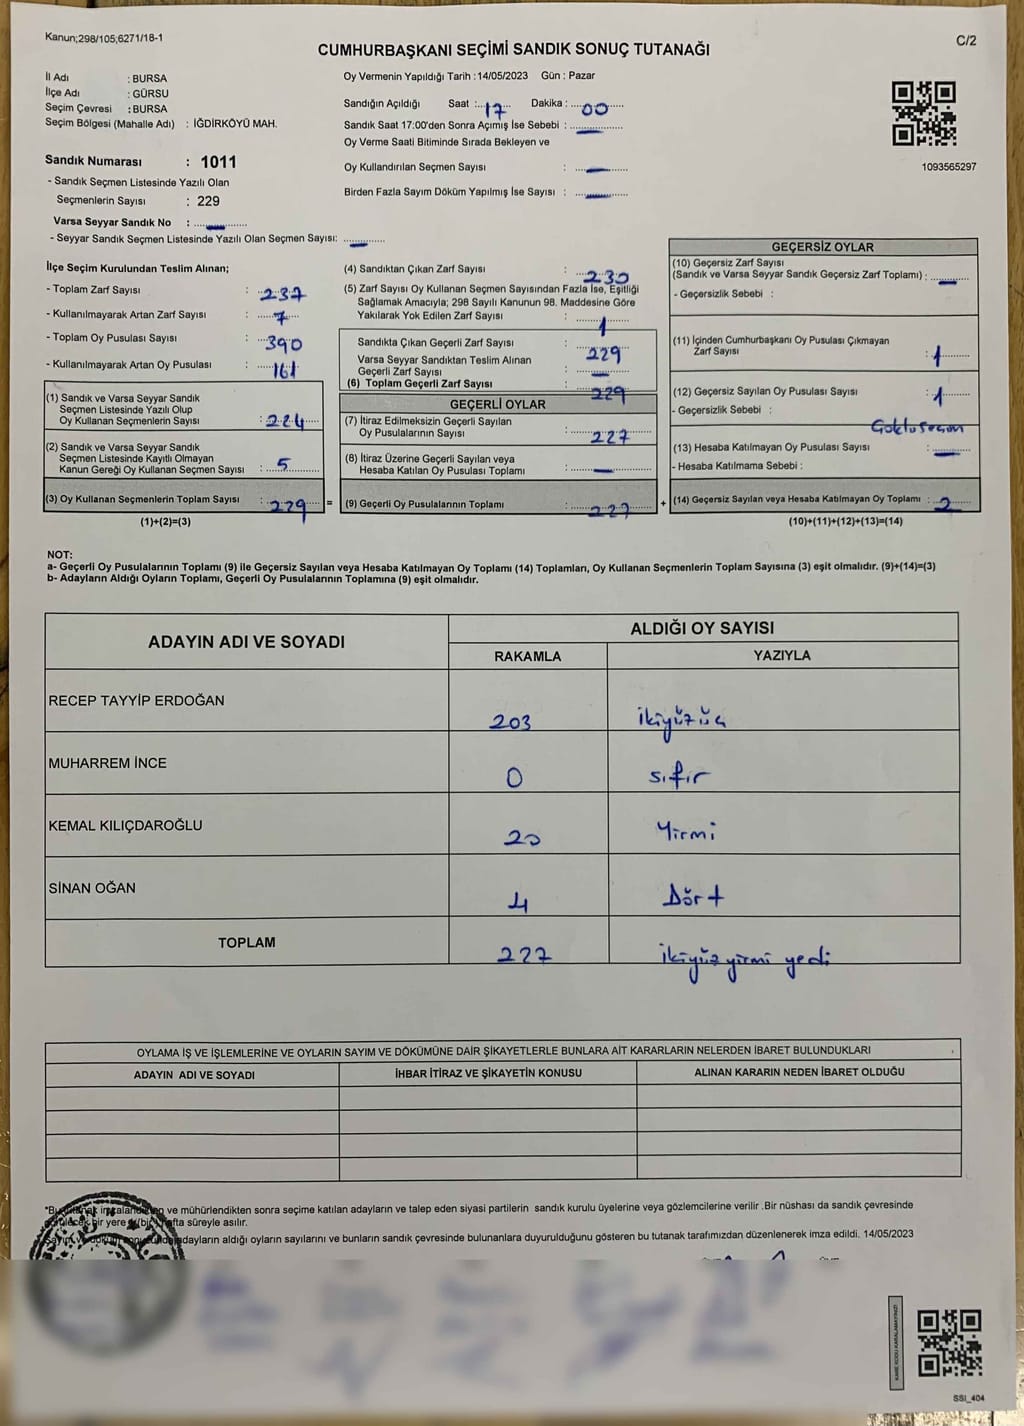 Kanun;298/105;6271/18-1
C/2
CUMHURBAŞKANI SEÇİMİ SANDIK SONUÇ TUTANAĞI
İl Adı : BURSA
İlçe Adı : GÜRSU
Seçim Çevresi : BURSA
Seçim Bölgesi (Mahalle Adı) : İĞDİRKÖYÜ MAH.
Sandık Numarası : 1011
- Sandık Seçmen Listesinde Yazılı Olan
Seçmenlerin Sayısı : 229
Varsa Seyyar Sandık No : —
- Seyyar Sandık Seçmen Listesinde Yazılı Olan Seçmen Sayısı: —
Oy Vermenin Yapıldığı Tarih :14/05/2023 Gün : Pazar
Sandığın Açıldığı Saat : 17 Dakika : 00
Sandık Saat 17:00'den Sonra Açımış İse Sebebi : —
Oy Verme Saati Bitiminde Sırada Bekleyen ve
Oy Kullandırılan Seçmen Sayısı : —
Birden Fazla Sayım Döküm Yapılmış İse Sayısı : —
1093565297
İlçe Seçim Kurulundan Teslim Alınan;
- Toplam Zarf Sayısı : 237
- Kullanılmayarak Artan Zarf Sayısı : 7
- Toplam Oy Pusulası Sayısı : 390
- Kullanılmayarak Artan Oy Pusulası : 161
(1) Sandık ve Varsa Seyyar Sandık
Seçmen Listesinde Yazılı Olup
Oy Kullanan Seçmenlerin Sayısı : 224
(2) Sandık ve Varsa Seyyar Sandık
Seçmen Listesinde Kayıtlı Olmayan
Kanun Gereği Oy Kullanan Seçmen Sayısı : 5
(3) Oy Kullanan Seçmenlerin Toplam Sayısı : 229 =
(1)+(2)=(3)
(4) Sandıktan Çıkan Zarf Sayısı : 230
(5) Zarf Sayısı Oy Kullanan Seçmen Sayısından Fazla İse, Eşitliği
Sağlamak Amacıyla; 298 Sayılı Kanunun 98. Maddesine Göre
Yakılarak Yok Edilen Zarf Sayısı : 1
Sandıkta Çıkan Geçerli Zarf Sayısı : 229
Varsa Seyyar Sandıktan Teslim Alınan
Geçerli Zarf Sayısı : —
(6) Toplam Geçerli Zarf Sayısı : 229
GEÇERLİ OYLAR
(7) İtiraz Edilmeksizin Geçerli Sayılan
Oy Pusulalarının Sayısı : 227
(8) İtiraz Üzerine Geçerli Sayılan veya
Hesaba Katılan Oy Pusulası Toplamı : —
(9) Geçerli Oy Pusulalarının Toplamı : 227 +
GEÇERSİZ OYLAR
(10) Geçersiz Zarf Sayısı
(Sandık ve Varsa Seyyar Sandık Geçersiz Zarf Toplamı) : —
- Geçersizlik Sebebi :
(11) İçinden Cumhurbaşkanı Oy Pusulası Çıkmayan
Zarf Sayısı : 1
(12) Geçersiz Sayılan Oy Pusulası Sayısı : 1
- Geçersizlik Sebebi :
(13) Hesaba Katılmayan Oy Pusulası Sayısı : —
- Hesaba Katılmama Sebebi :
(14) Geçersiz Sayılan veya Hesaba Katılmayan Oy Toplamı : 2
(10)+(11)+(12)+(13)=(14)
NOT:
a- Geçerli Oy Pusulalarının Toplamı (9) ile Geçersiz Sayılan veya Hesaba Katılmayan Oy Toplamı (14) Toplamları, Oy Kullanan Seçmenlerin Toplam Sayısına (3) eşit olmalıdır. (9)+(14)=(3)
b- Adayların Aldığı Oyların Toplamı, Geçerli Oy Pusulalarının Toplamına (9) eşit olmalıdır.
ADAYIN ADI VE SOYADI ALDIĞI OY SAYISI
RAKAMLA YAZIYLA
RECEP TAYYİP ERDOĞAN 203 ikiyüzüç
MUHARREM İNCE 0 sıfır
KEMAL KILIÇDAROĞLU 20 Yirmi
SİNAN OĞAN 4 Dört
TOPLAM 227 ikiyüz yirmi yedi
OYLAMA İŞ VE İŞLEMLERİNE VE OYLARIN SAYIM VE DÖKÜMÜNE DAİR ŞİKAYETLERLE BUNLARA AİT KARARLARIN NELERDEN İBARET BULUNDUKLARI
ADAYIN ADI VE SOYADI İHBAR İTİRAZ VE ŞİKAYETİN KONUSU ALINAN KARARIN NEDEN İBARET OLDUĞU
ve mühürlendikten sonra seçime katılan adayların ve talep eden siyasi partilerin sandık kurulu üyelerine veya gözlemcilerine verilir .Bir nüshası da sandık çevresinde
bir yere (bir) hafta süreyle asılır.
adayların aldığı oyların sayılarını ve bunların sandık çevresinde bulunanlara duyurulduğunu gösteren bu tutanak tarafımızdan düzenlenerek imza edildi. 14/05/2023
KARE KODU KARALAMAYINIZ!
SSI_404